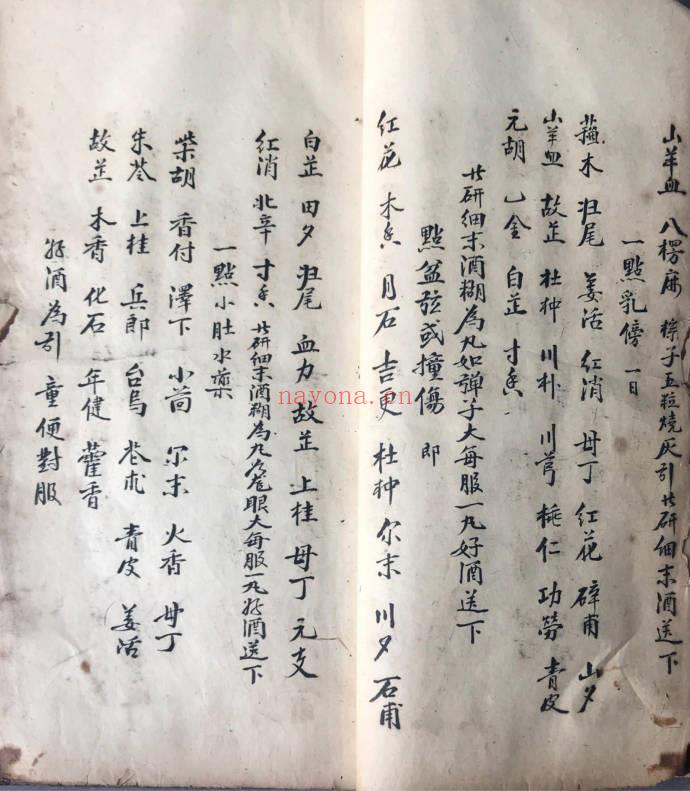 山羊血 八楞麻 棕子五粒燒灰引 共研細末酒送下
一點乳傍 一日
蘓木 归尾 姜活 红消 母丁 红花 碎甫 山夕
山羊血 故芷 杜仲 川朴 川芎 桃仁 功劳 青皮
元胡 乙金 白芷 寸香
共研細末酒糊為丸如弹子大每服一丸好酒送下
點盆弦或撞傷 即
红花 木香 月石 吉更 杜仲 尔末 川夕 石甫
白芷 田夕 归尾 血力 故芷 上桂 母丁 元支
红消 北辛 寸香 共研細末酒糊為丸龙眼大每服一丸好酒送下
一點小肚水藥
柴胡 香付 澤下 小茴 尔末 火香 母丁
朱苓 上桂 兵郎 台乌 苍朮 青皮 姜活
故芷 木香 化石 年健 藿香
好酒為引 童便對服
nayona.cn